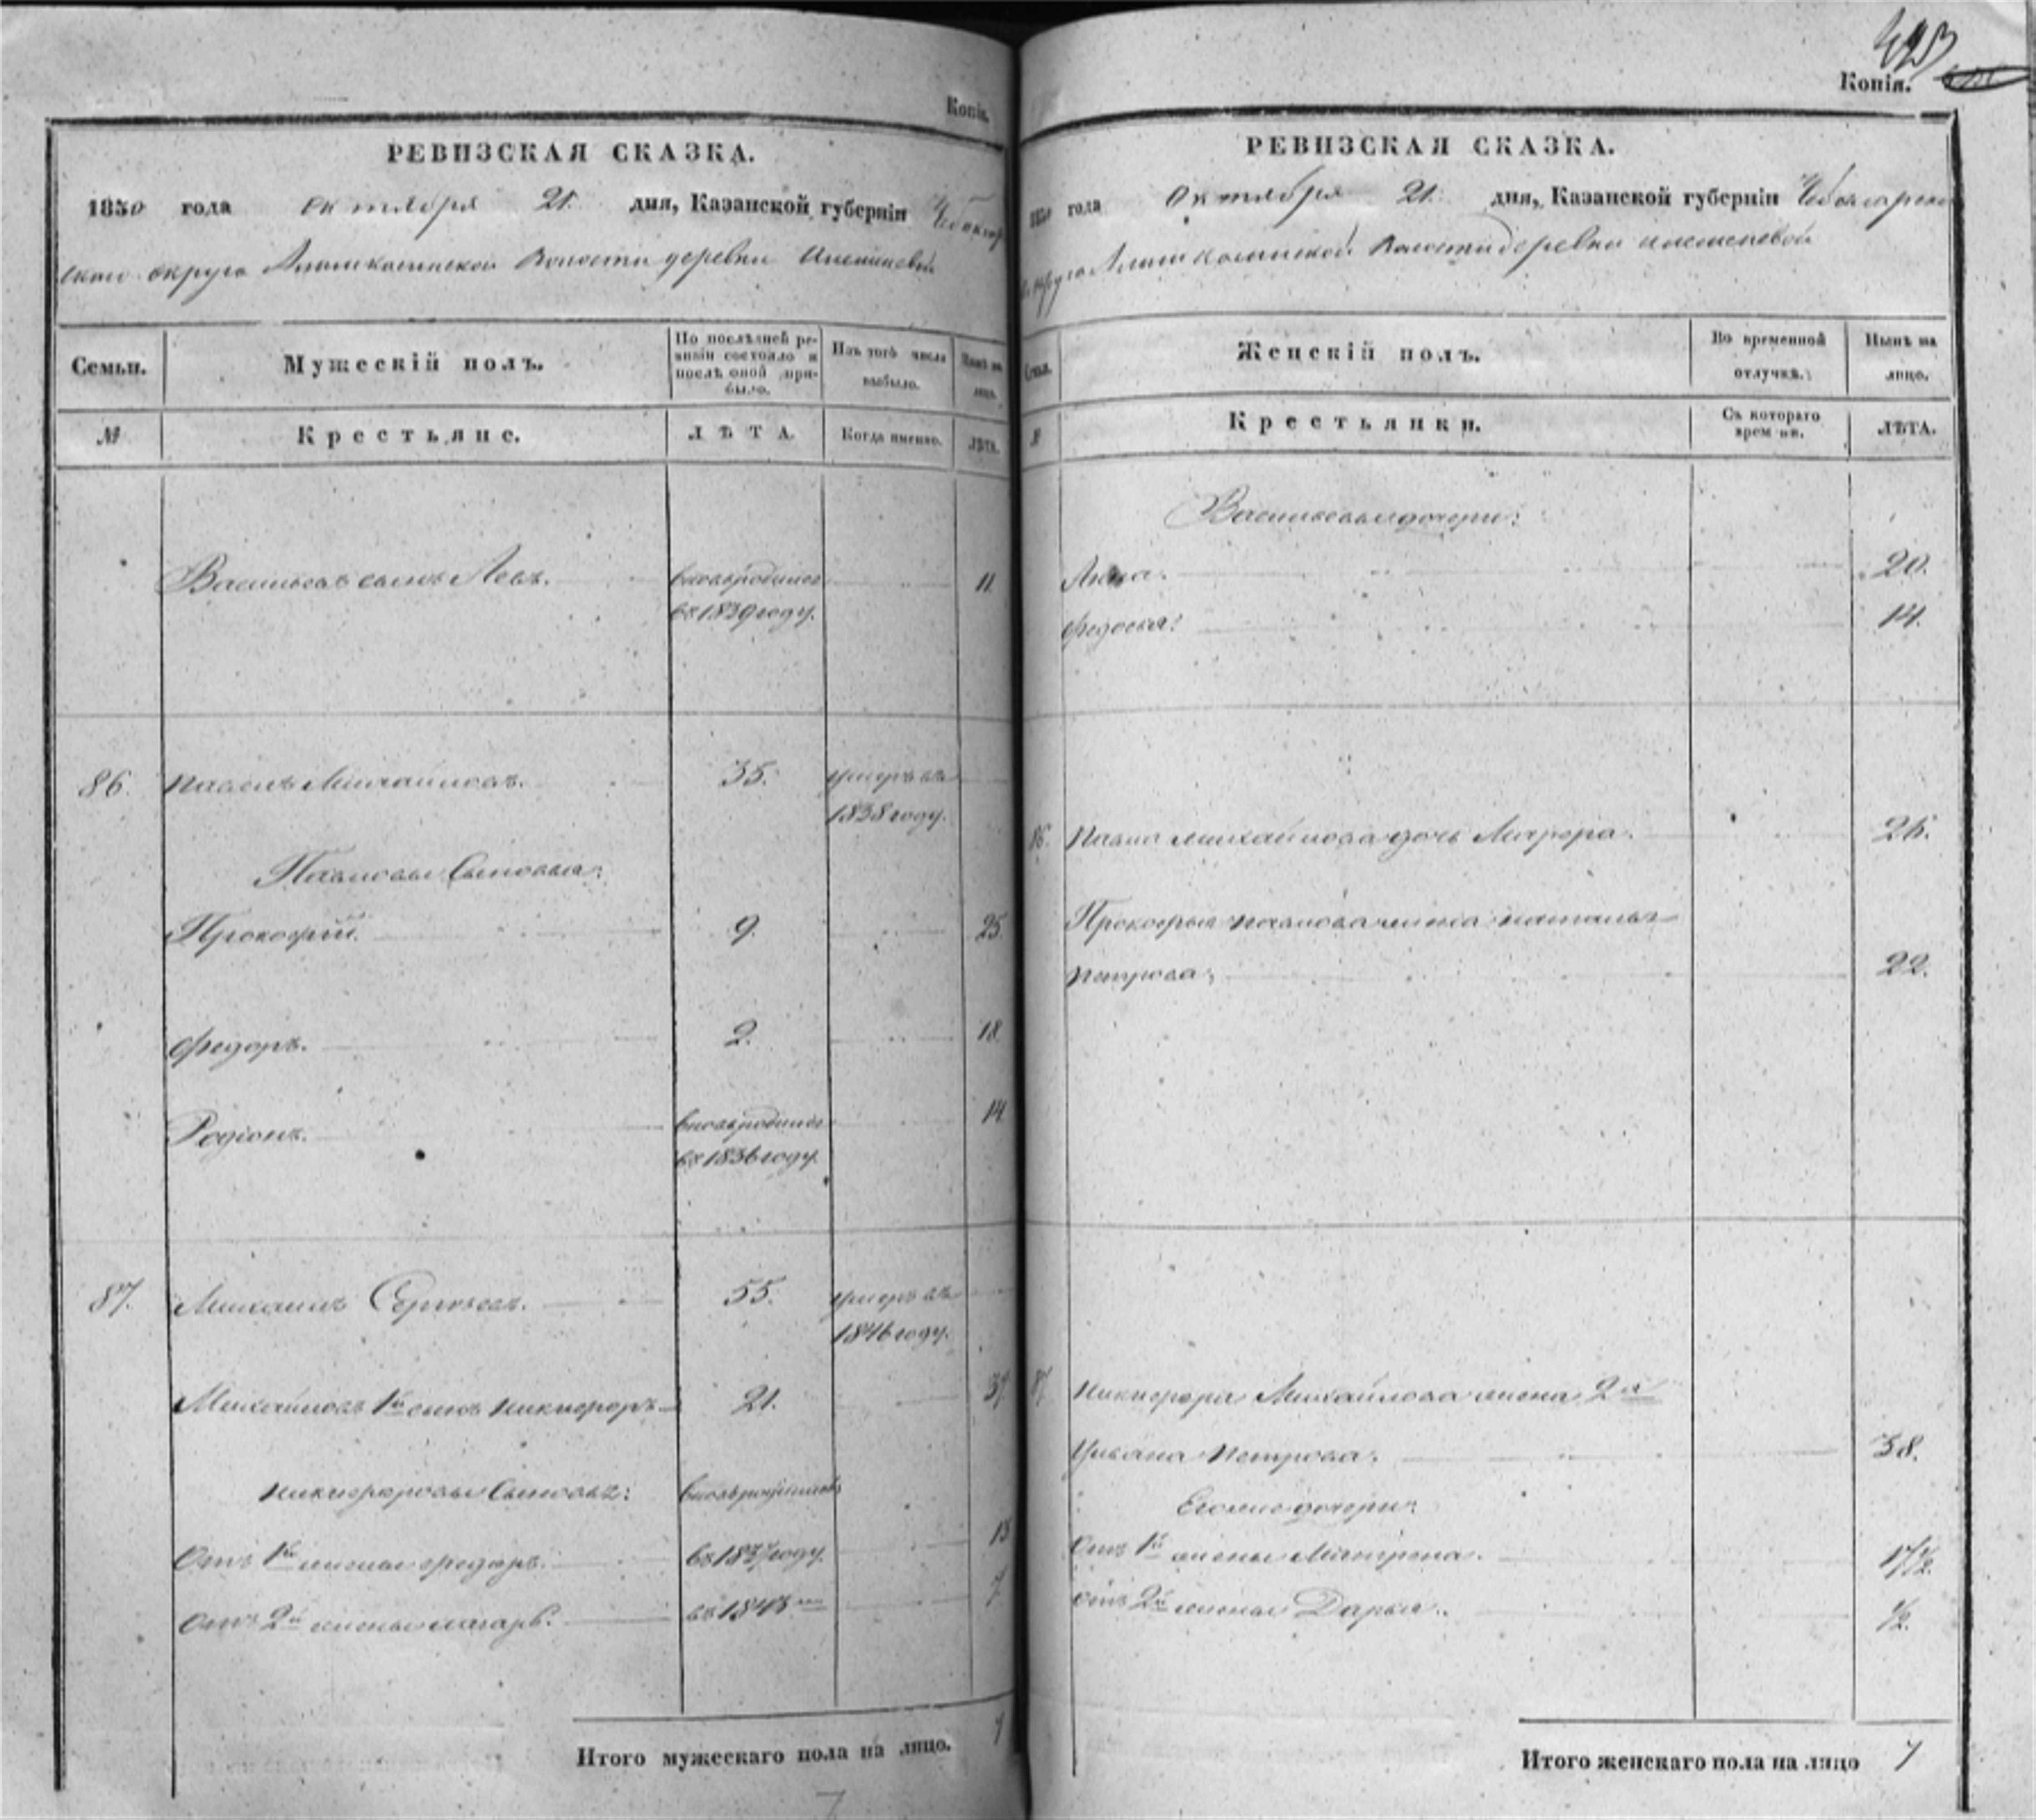 Копія.
РЕВИЗСКАЯ СКАЗКА.
1850 года октября 21. дня, Казанской губерніи Чебоксар
скаго округа Алымкасинской Волости деревни
Семьи.
Мужескій полъ.
По послѣдней ре-
визіи состояло и
послѣ оной при-
было.
Изъ того числа
выбыло.
Нынѣ на
лицо.
№
Крестьяне.
ЛѢТА.
Когда именно.
ЛѢТА.
Васильевъ сынъ Левъ.
вновь родился
11
въ 1839 году.
86.
Павелъ Михайловъ.
35.
умеръ въ
1838 году.
Павловы Сыновья:
Прокофій.
9.
25
Федоръ.
2.
18
Родіонъ.
вновь родился
14
въ 1836 году.
87.
Михаилъ Сергѣевъ.
55.
умеръ въ
1846 году.
Михайловъ 1й сынъ Никифоръ
21.
37
Никифоровы Сыновья:
вновь рожденные
Отъ 1й жены Федоръ.
году.
Отъ 2й жены
въ 1843м
7
Итого мужескаго пола на лицо.
7
423
Копія.
РЕВИЗСКАЯ СКАЗКА.
1850 года октября 21. дня, Казанской губерніи Чебоксарскаго
округа Алымкасинской Волости деревни
Семьи.
Женскій полъ.
Во временной
отлучкѣ.
Нынѣ на
лицо.
№
Крестьянки.
Съ котораго
времени.
ЛѢТА.
Васильевы дочери:
Анна.
20.
Федосья:
14.
86.
Павла Михайлова дочь Марфа.
Прокофья Павлова жена Наталья
Петрова.
22.
87
Никифора Михайлова жена 2я
Ульяна Петрова.
38.
Его же дочери:
Отъ 1й жены Матрена.
отъ 2й жены Дарья.
1/2.
Итого женскаго пола на лицо
7